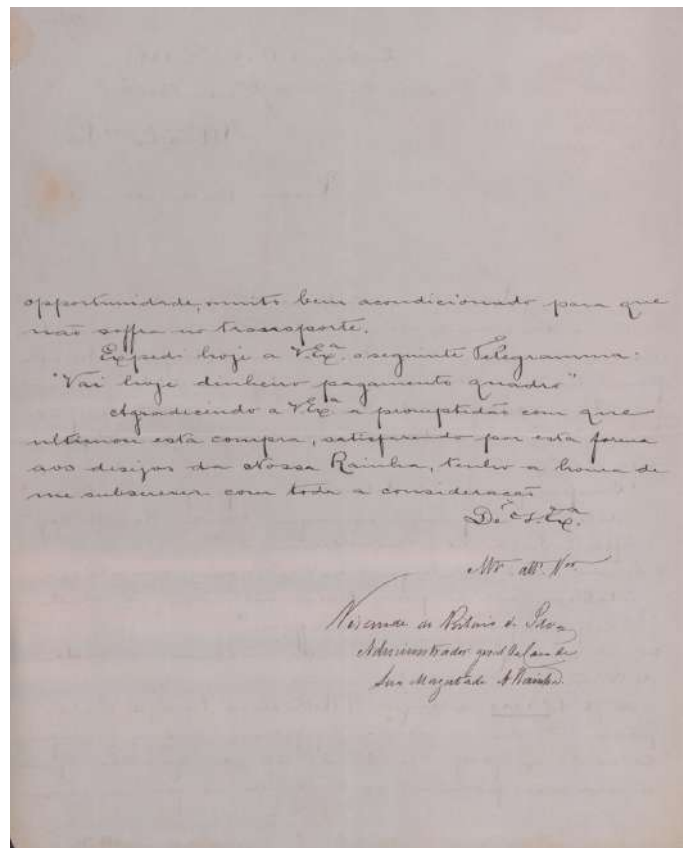 opportunidade, muito bem acondicionado para que
não soffra no transporte.
Expedi hoje a V. Exª. o seguinte Telegramma:
"Vai hoje dinheiro pagamento quadro"
Agradicendo a V. Exª a promptidão com que
ultimou esta compra, satisfazendo por esta forma
aos desejos da Nossa Rainha, tenho a honra de
me subscrever com toda a consideração
De V. Exª.
Mto. attº. Vor.
Visconde de
Administrador geral da Casa de
Sua Magestade A Rainha.